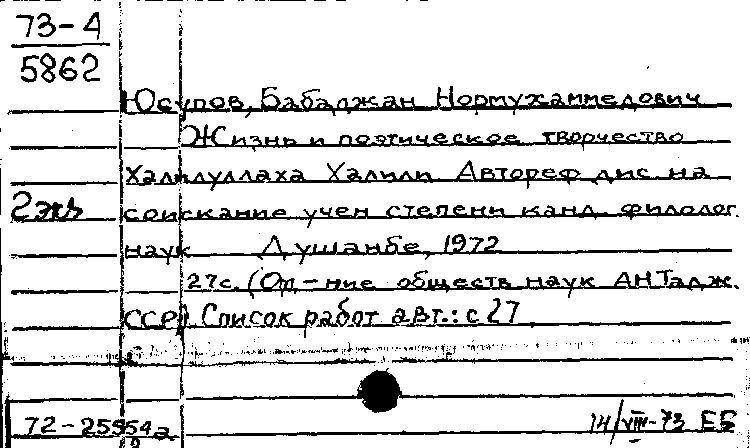 73-4
5862
Юсупов, Бабаджан Нормухаммедович
Жизнь и поэтическое творчество
Халилуллаха Халили Автореф дис на
2экз соискание учен степени канд. филолог.
наук Душанбе, 1972
27с. (Отд-ние обществ наук АН Тадж.
ССР) Список работ авт.: с 27.
72-25554а
14/VIII-73 ЕБ